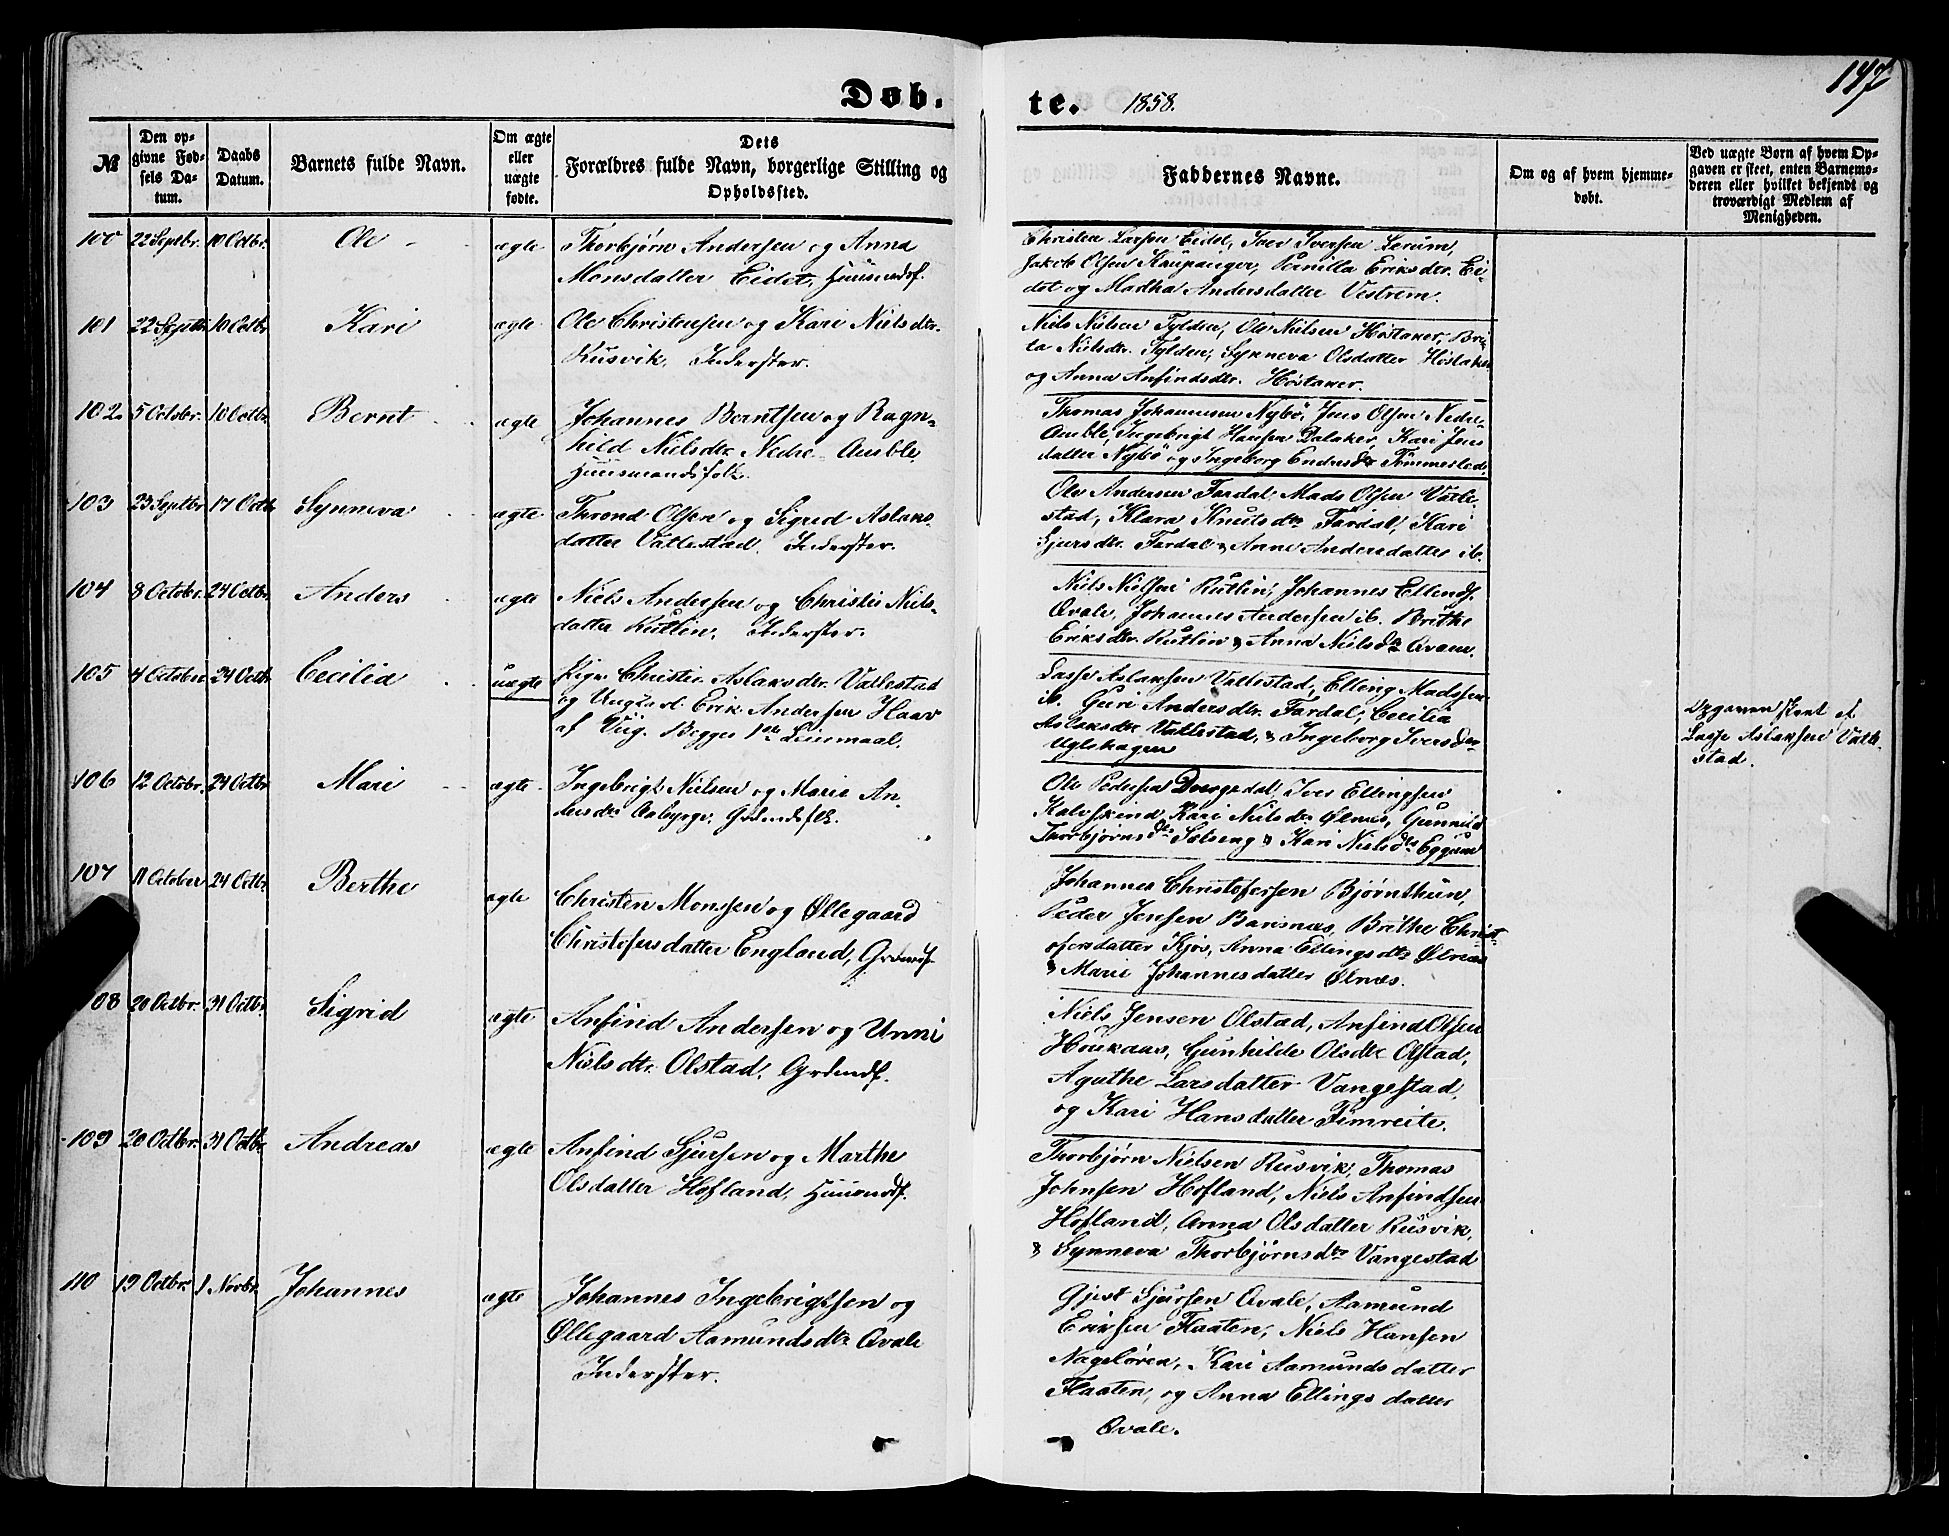 147
Døb.
te. 1858.
№
Den op-
givne Fød-
sels Da-
tum.
Daabs
Datum.
Barnets fulde Navn.
Om ægte
eller
uægte
fødte.
Dets
Forældres fulde Navn, borgerlige Stilling og
Opholdssted.
Faddernes Navne.
Om og af hvem hjemme-
døbt.
Ved uægte Børn af hvem Op-
gaven er skeet, enten Barnemo-
deren eller hvilket bekjendt og
troværdigt Medlem af
Menigheden.
100 22 Septbr. 10 Octbr. Ole ægte Thorbjørn Andersen og Anna
Monsdatter Eidet, Huusmdsf.
Christen Larsen Eidet, Iver Iversen Lerum,
Jakob Olsen Kaupanger, Pernilla Eriksdtr. Ei-
det og Madtha Andersdatter Vestrem.
101 22 Septbr 10 Octbr Kari ægte Ole Christensen og Kari Nielsdtr.
Rusvik. Inderster.
Niels Nielsen Fylden, Ole Nielsen Høstaker, Bri-
ta Nielsdtr. Fylden, Synneva Olsdatter Høstaker
og Anna Anfindsdtr. Høstaker.
102 5 Octobr. 10 Octbr Bernt ægte Johannes Berntsen og Ragn-
hild Nielsdtr Nedre Amble
Huusmandsfolk.
Thomas Johannesen Nybø, Jens Olsen Nedre-
Amble, Ingebrigt Hansen Dalaker, Kari Jens
datter Nybø og Ingeborg Endresdtr Tømmerstad.
103 23 Septbr 17 Octbr Synneva ægte Thrond Olsen og Sigrid Aslaks-
datter Vallestad. Inderster.
Ole Andersen Fardal, Mads Olsen Valle-
stad, Klara Knutsdtr Fardal, Kari
Sjursdtr. Fardal & Anne Andersdatter ib.
104 8 October. 24 Octbr. Anders ægte Niels Andersen og Christi Niels-
datter Rutlin, Inderster.
Niels Nielsen Rutlin, Johannes Ellends.
Qvale, Johannes Andersen ib. Brithe
Eriksdtr. Rutlin & Anna Nielsdtr Qvam.
105 4 October 24 Octb. Cecilia uægte Pige Christi Aslaksdtr. Vallestad
og Ungkarl. Erik Andersen Haav
af Viig. Begges 1ste Leiermaal.
Lasse Aslaksen Vallestad, Elling Madssen
ib. Guri Andersdtr. Fardal, Cecilia
Aslaksdtr Vallestad, & Ingeborg Iversdtr
Uglehagen
Opgaven skeet af
Lasse Aslaksen Valle-
stad.
106 12 Octobr. 24 Octbr Mari ægte Ingebrigt Nielsen og Marie An-
dersdtr Aaberge, Grdmdsfolk.
Ole Pedersen Dvergsdal, Iver Ellingsen
Kalvskind, Kari Nielsdtr Ølnes, Gunnild
Thorbjørnsdtr Selseng & Kari Nielsdtr Eggum
107 11 October 24 Octbr Berthe ægte Christen Monssen og Øllegaard
Christofersdatter England, Grdmdsf.
Johannes Christofersen Bjørnthun,
Peder Jensen Barsnæs, Brithe Christ-
ofersdatter Kjøs, Anna Ellingsdtr Ølnæs
& Marie Johannesdatter Ølnæs.
108 20 Octbr. 31 Octbr. Sigrid ægte Anfind Andersen og Unni
Nielsdtr. Olstad, Grdmdsf.
Niels Jensen Olstad, Anfind Olsen
Houkaas, Gunhilde Olsdtr. Olstad,
Agathe Larsdatter Vangestad,
og Kari Hansdatter Fimreite.
109 20 Octbr. 31 Octbr Andreas ægte Anfind Sjursen og Marthe
Olsdatter Hofland, Huusmdsf.
Thorbjørn Nielsen Rusvik, Thomas
Johnsen Hofland, Niels Anfindsen
Hofland, Anna Olsdatter Rusvik,
& Synneva Thorbjørnsdtr Vangestad
110 19 Octbr. 1 Novbr. Johannes ægte Johannes Ingebrigtsen og
Øllegaard Aamundsdtr. Qvale
Inderster.
Gjest Sjursen Qvale, Aamund
Eriksen Flaaten, Niels Hansen
Nageløren, Kari Aamundsdatter
Flaaten, og Anna Ellingsdatter
Qvale.